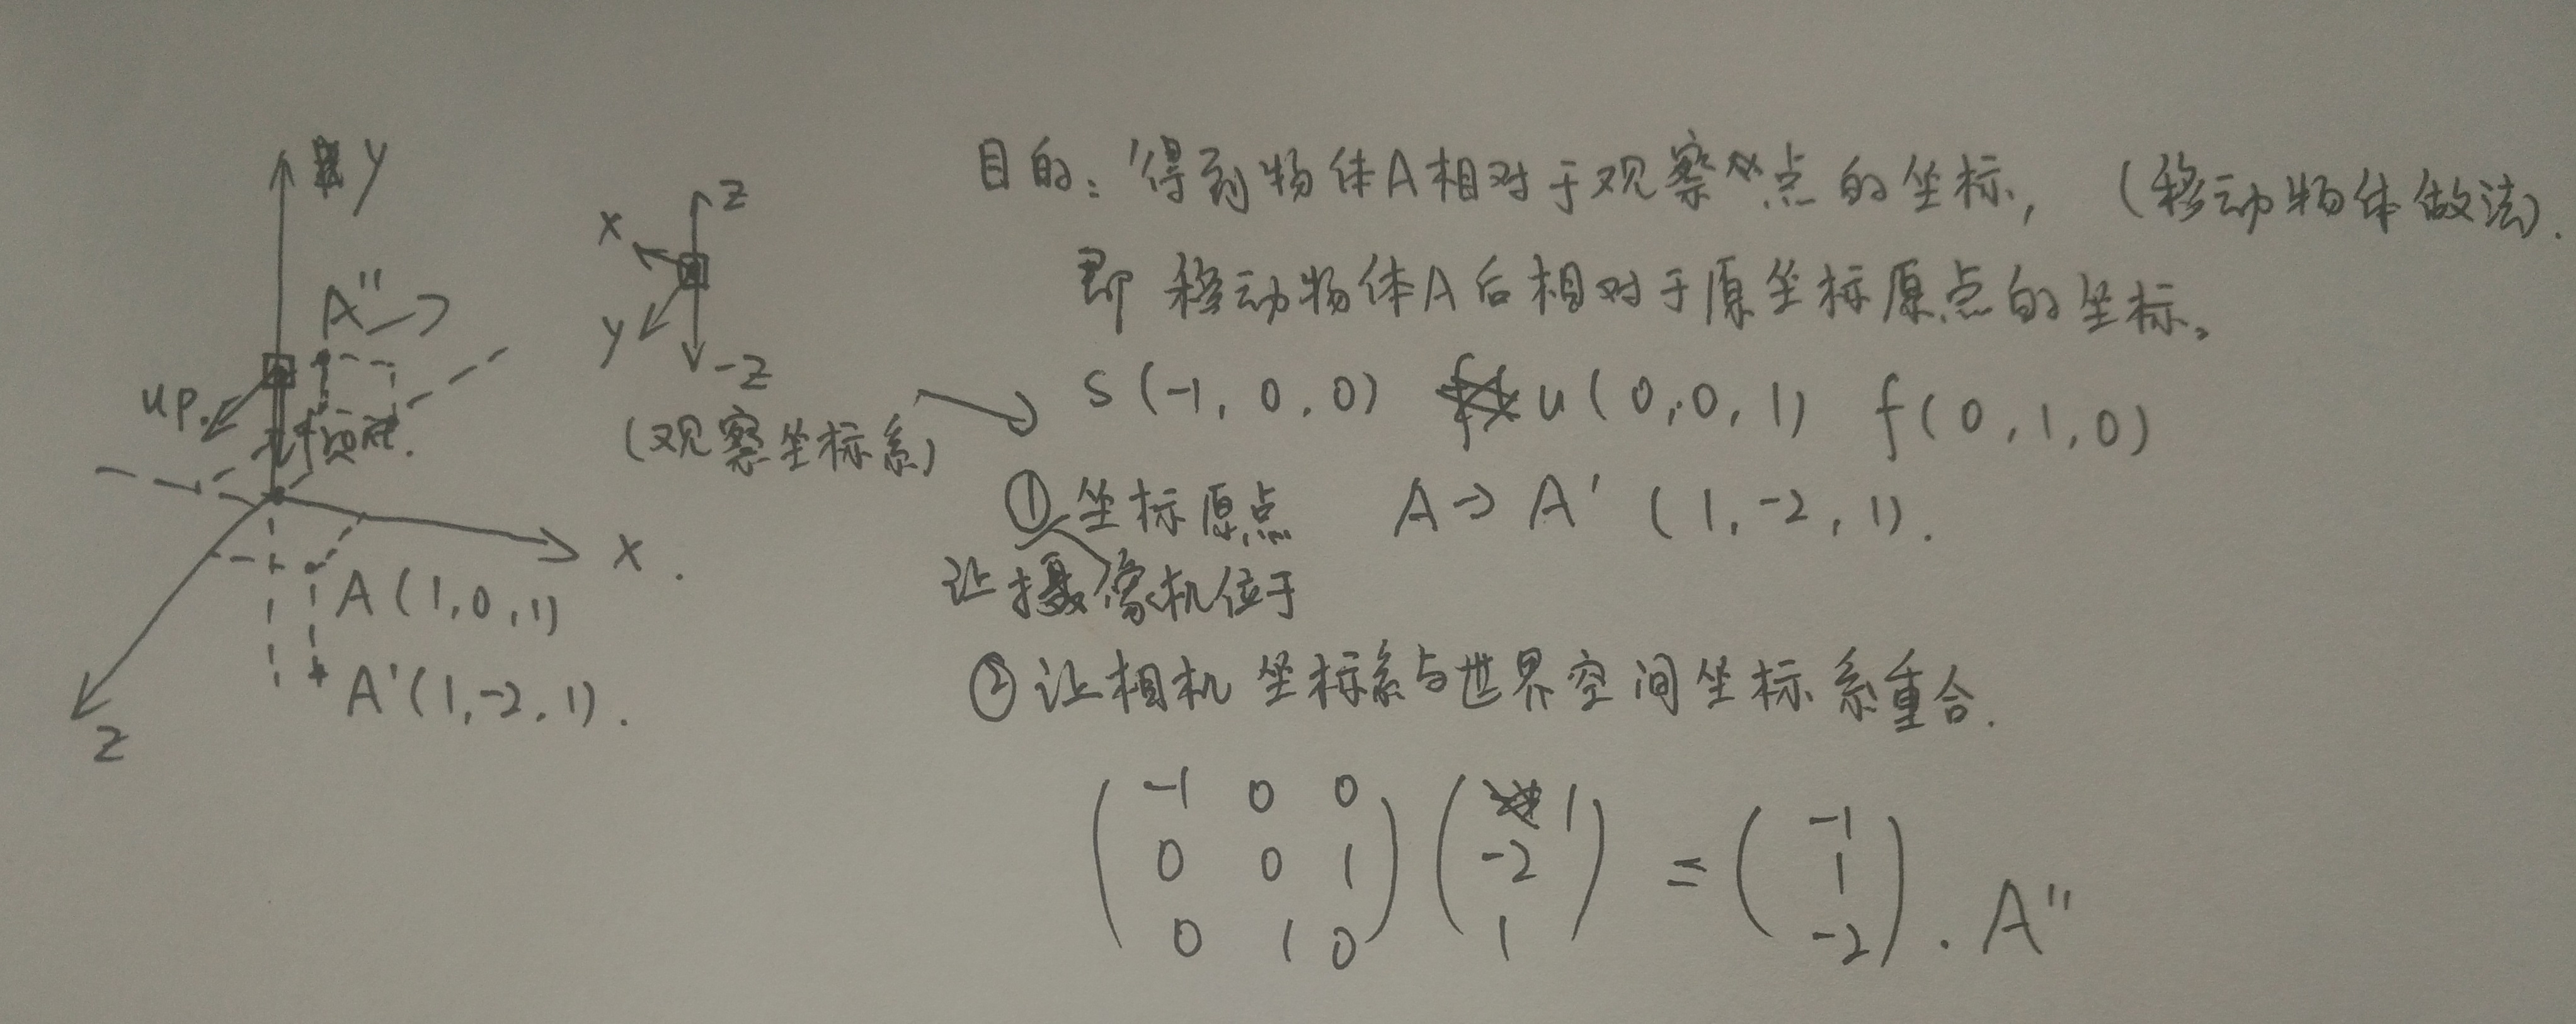 y
A''
up.
x.
A(1,0,1)
A'(1,-2,1).
z
z
x
y
-z
(观察坐标系)
目的: 得到物体A相对于观察点的坐标, (移动物体做法).
即 移动物体A后相对于原坐标原点的坐标。
s(-1,0,0) u(0,0,1) f(0,1,0)
① 坐标原点 A→A'(1,-2,1).
让摄像机位于
② 让相机坐标系与世界空间坐标系重合.
-1 0 0 1 -1
0 0 1 -2 = 1
0 1 0 1 -2 . A''